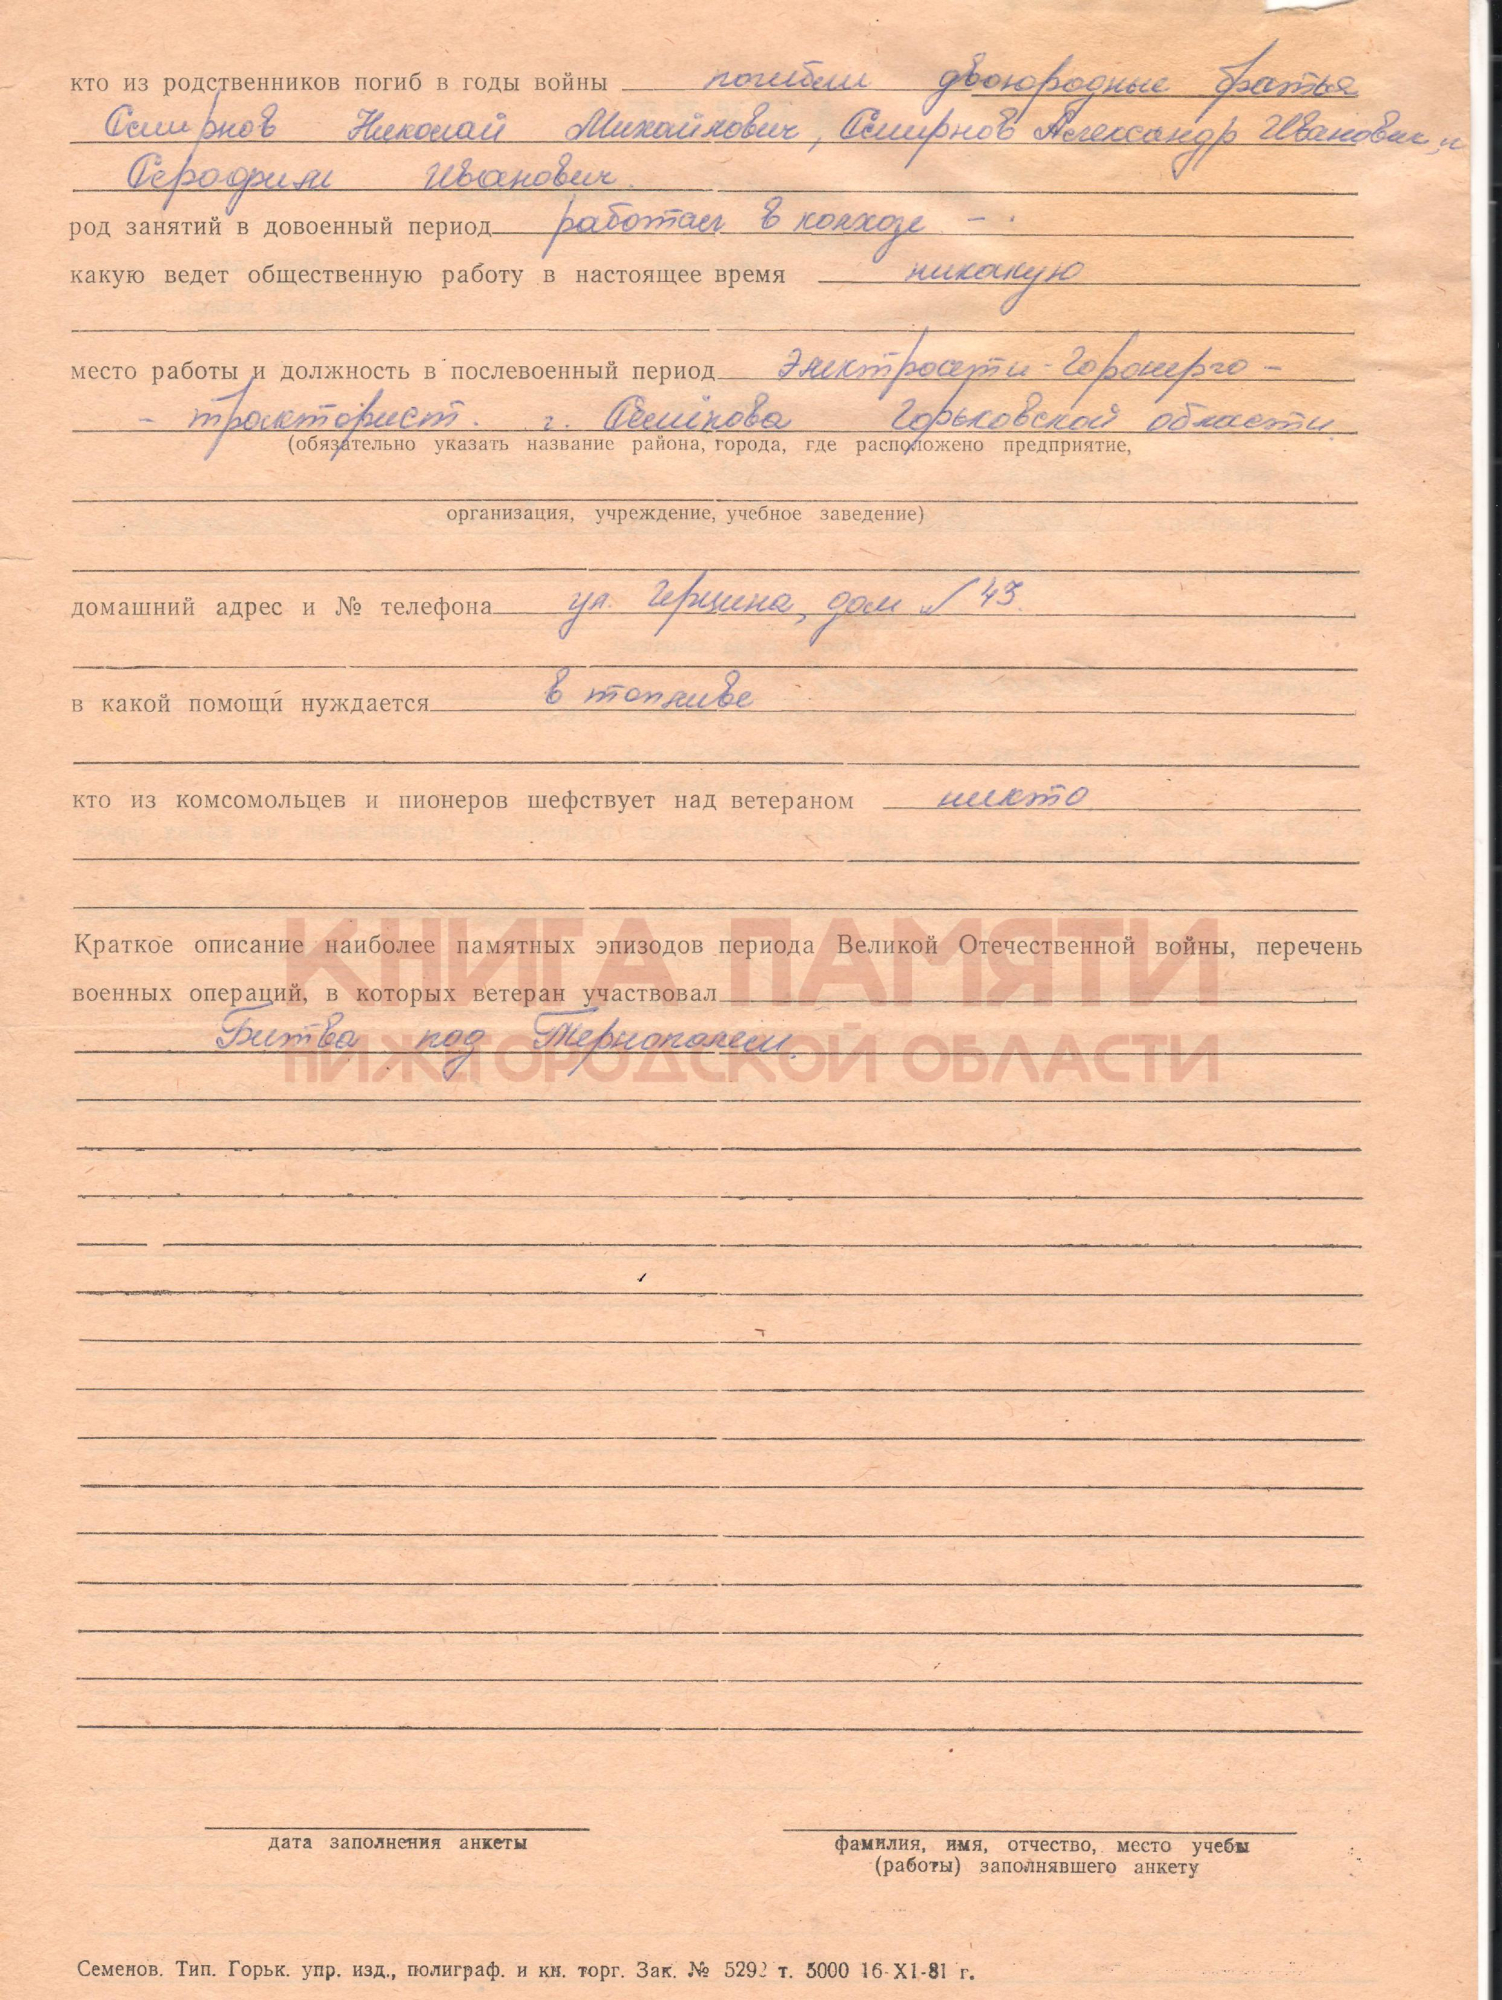 кто из родственников погиб в годы войны погибли двоюродные братья
Смирнов Николай Михайлович, Смирнов Александр Иванович, и
Серафим Иванович.
род занятий в довоенный период работал в колхозе -
какую ведет общественную работу в настоящее время никакую
место работы и должность в послевоенный период Электросети - Горэнерго -
- тракторист. г. Семёнова Горьковской области.
(обязательно указать название района, города, где расположено предприятие,
организация, учреждение, учебное заведение)
домашний адрес и № телефона ул. Герцена, дом № 43.
в какой помощи нуждается в топливе
кто из комсомольцев и пионеров шефствует над ветераном никто
КНИГА ПАМЯТИ
Краткое описание наиболее памятных эпизодов периода Великой Отечественной войны, перечень
военных операций, в которых ветеран участвовал
Битва под Тернополем.
НИЖЕГОРОДСКОЙ ОБЛАСТИ
дата заполнения анкеты
фамилия, имя, отчество, место учебы
(работы) заполнявшего анкету
Семенов. Тип. Горьк. упр. изд., полиграф. и кн. торг. Зак. № 5292 т. 5000 16-XI-81 г.